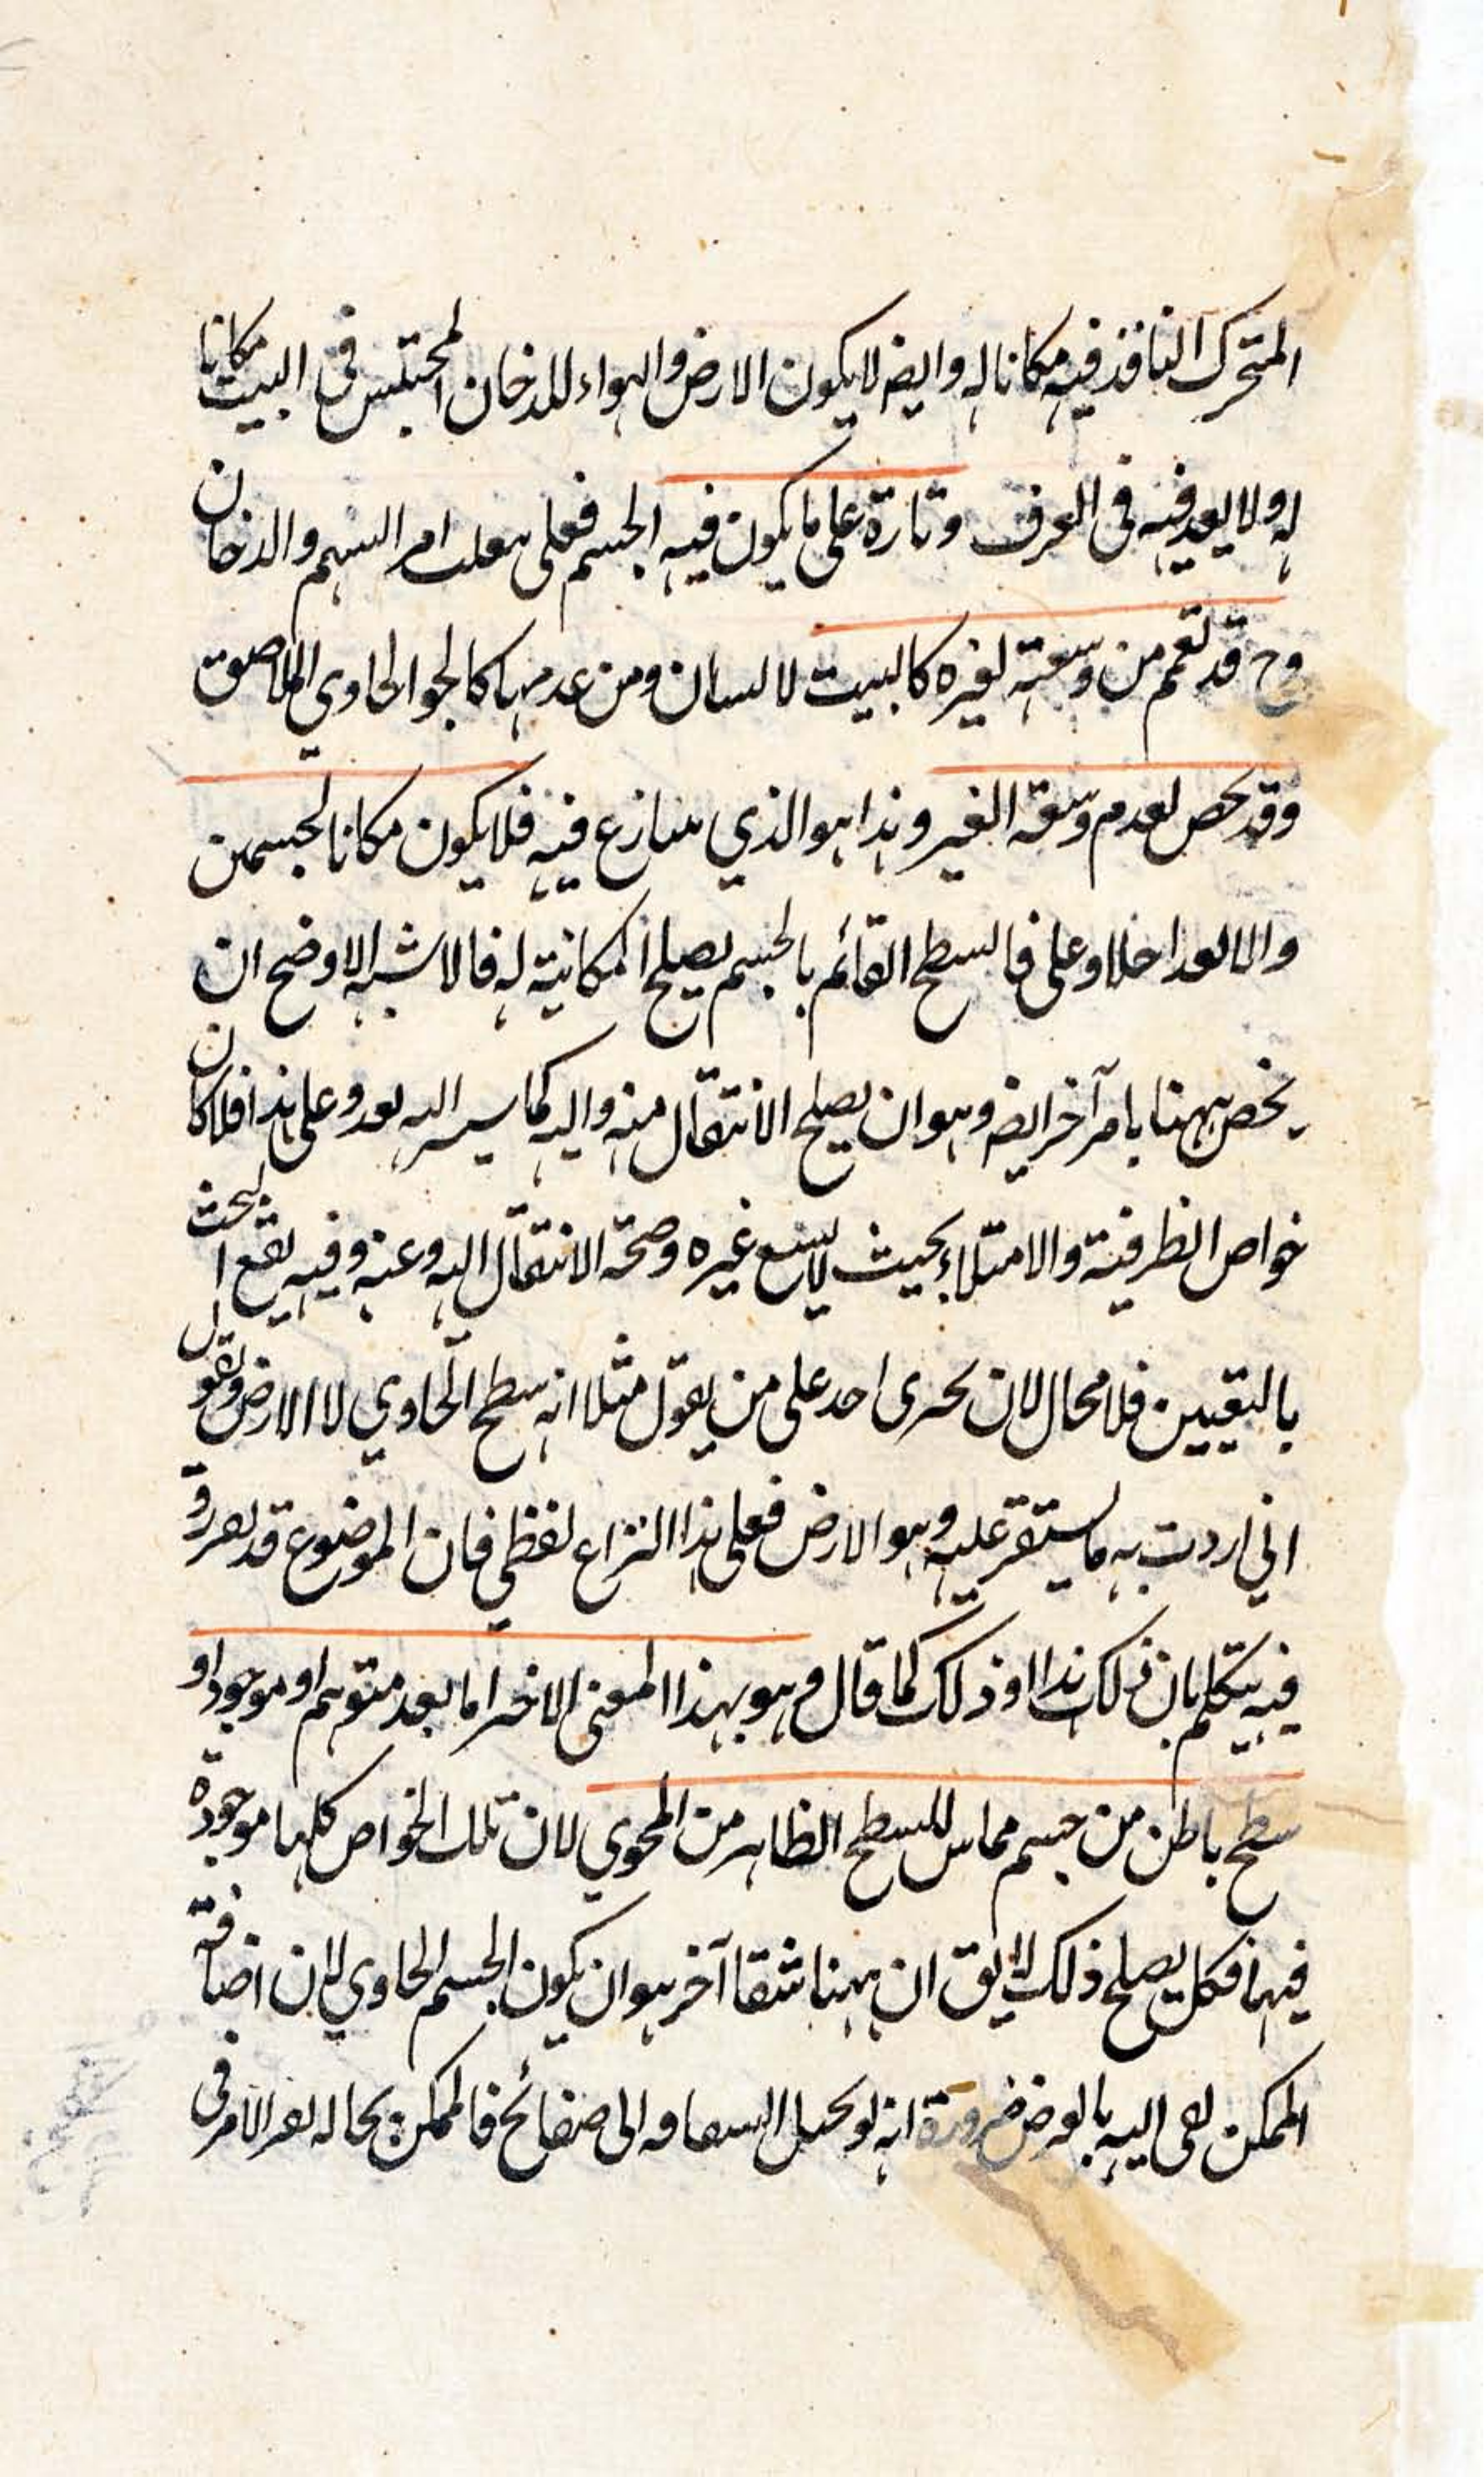 المتحرك النافذ فيه مكانا له وايضا لا يكون الارض والهواء للدخان المحتبس فى البيت مكانا
له ولا يعد فيه فى العرف وتارة على ما يكون فيه الجسم فعلى امر السهم والدخان
وح قد تعمم من وسعته لغيره كالبيت لانسان ومن عدمها كالجو الحاوي الملاصق
وقد يخص بعدم وسعة الغير وهذا هو الذي يتنازع فيه فلا يكون مكانا لجسمين
والا لتداخلا وعلى فالسطح القائم بالجسم يصلح المكانية له فالاشبه الاوضح ان
يخص ههنا بامر آخر ايضه وهو ان يصلح الانتقال منه واليه كما سيشير اليه بعد وعلى هذا فلا كان
خواص الظرفية والامتلاء بحيث لا يسع غيره وصحة الانتقال اليه وعنه وفيه يقع البحث
باليقين فلا مجال لان يجرى احد على من يقول مثلا انه سطح الحاوي لا الارض ويقول
اني اردت به ما يستقر عليه وهو الارض فعلى هذا النزاع لفظي فان الموضوع قد يعرف و
فيه يتكلم بان ذلك هذا او ذلك كما قال وهو بهذا المعنى الاخير اما بعد متوهم او موجود او
سطح باطن من جسم مماس للسطح الظاهر من المحوي لان تلك الخواص كلها موجودة
فيها فكل يصلح ذلك لا يق ان ههنا شقا آخر هو ان يكون الجسم الحاوي لان اضافة
المكن اليه بالعرض ضرورة انه لو الى صفائح فالممكن بحاله الامر فى